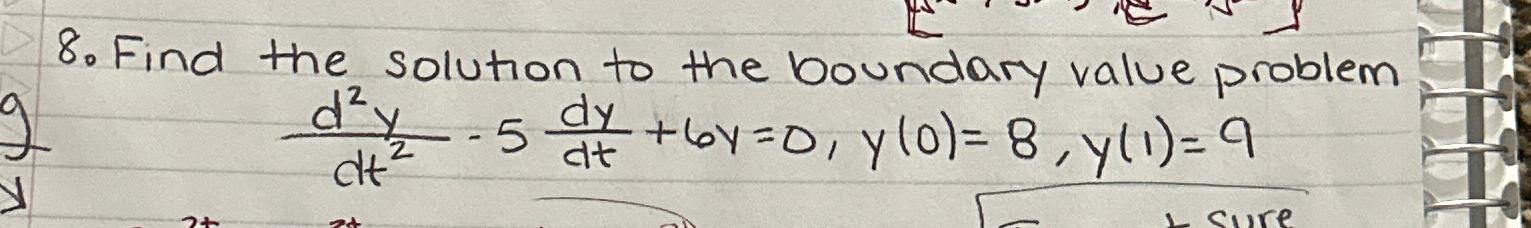 8. Find the solution to the boundary value problem
d²y/dt² - 5 dy/dt + 6y = 0, y(0) = 8, y(1) = 9
sure